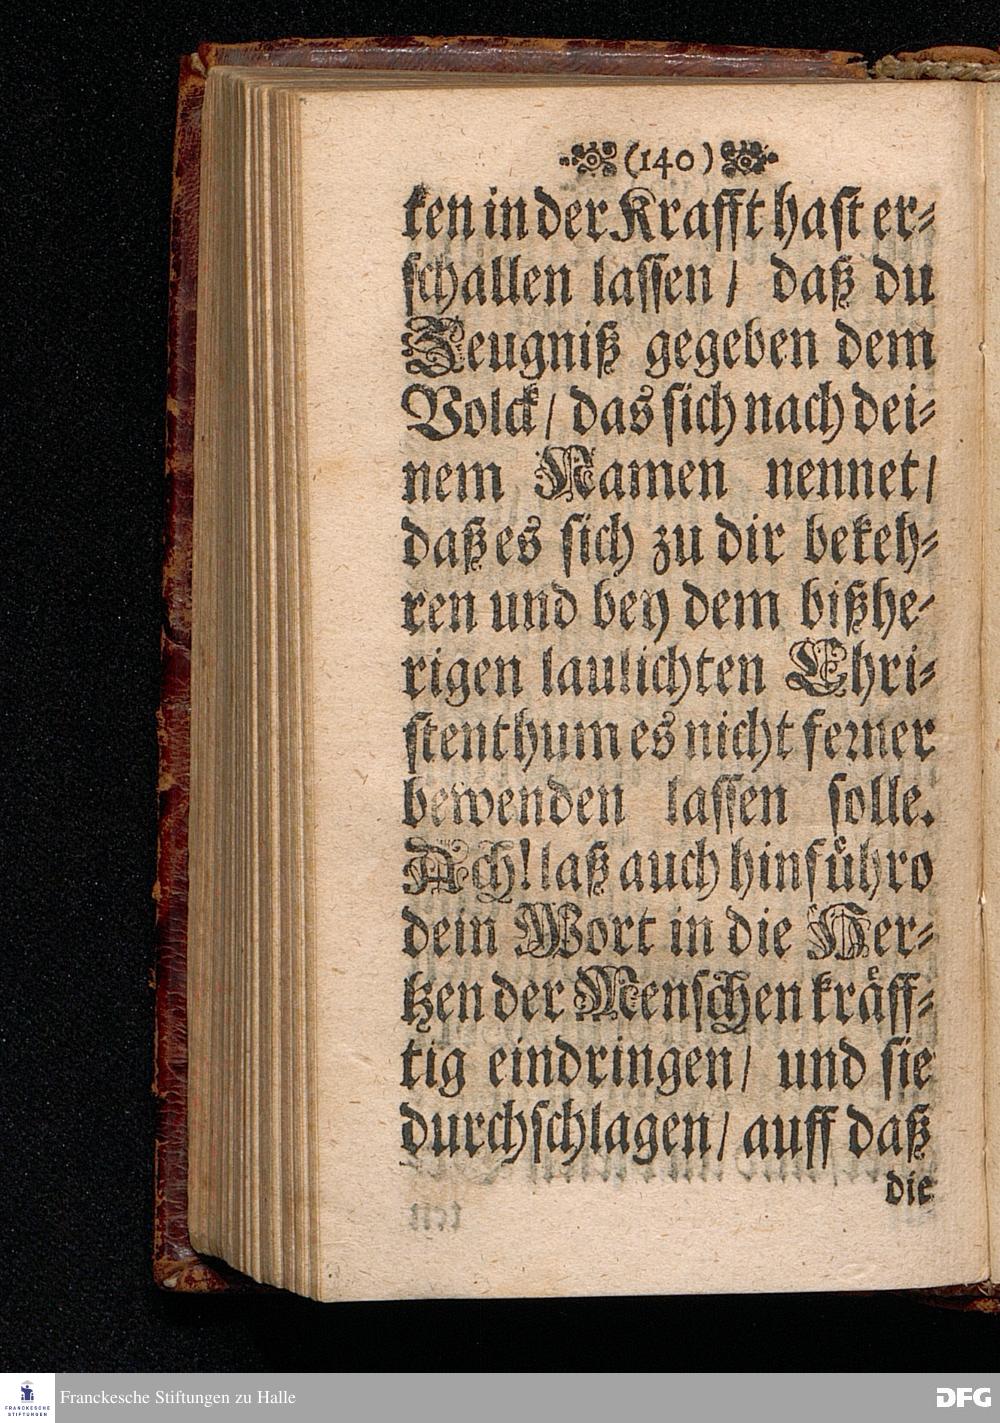 (140)
ken in der Krafft hast er-
schallen lassen / daß du
Zeugniß gegeben dem
Volck / das sich nach dei-
nem Namen nennet /
daß es sich zu dir bekeh-
ren und bey dem bißhe-
rigen laulichten Chri-
stenthum es nicht ferner
bewenden lassen solle.
Ach! laß auch hinfuͤhro
dein Wort in die Her-
tzen der Menschen kraͤff-
tig eindringen / und sie
durchschlagen / auff daß
die
FRANCKESCHE
STIFTUNGEN
Franckesche Stiftungen zu Halle
DFG